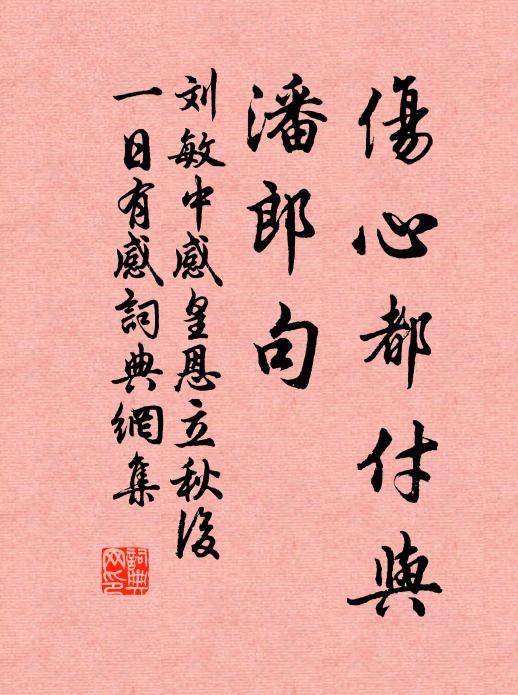 傷心都付與
潘郎句
刘敏中感皇恩立秋後
一日有感詞典網集
詞典
网印